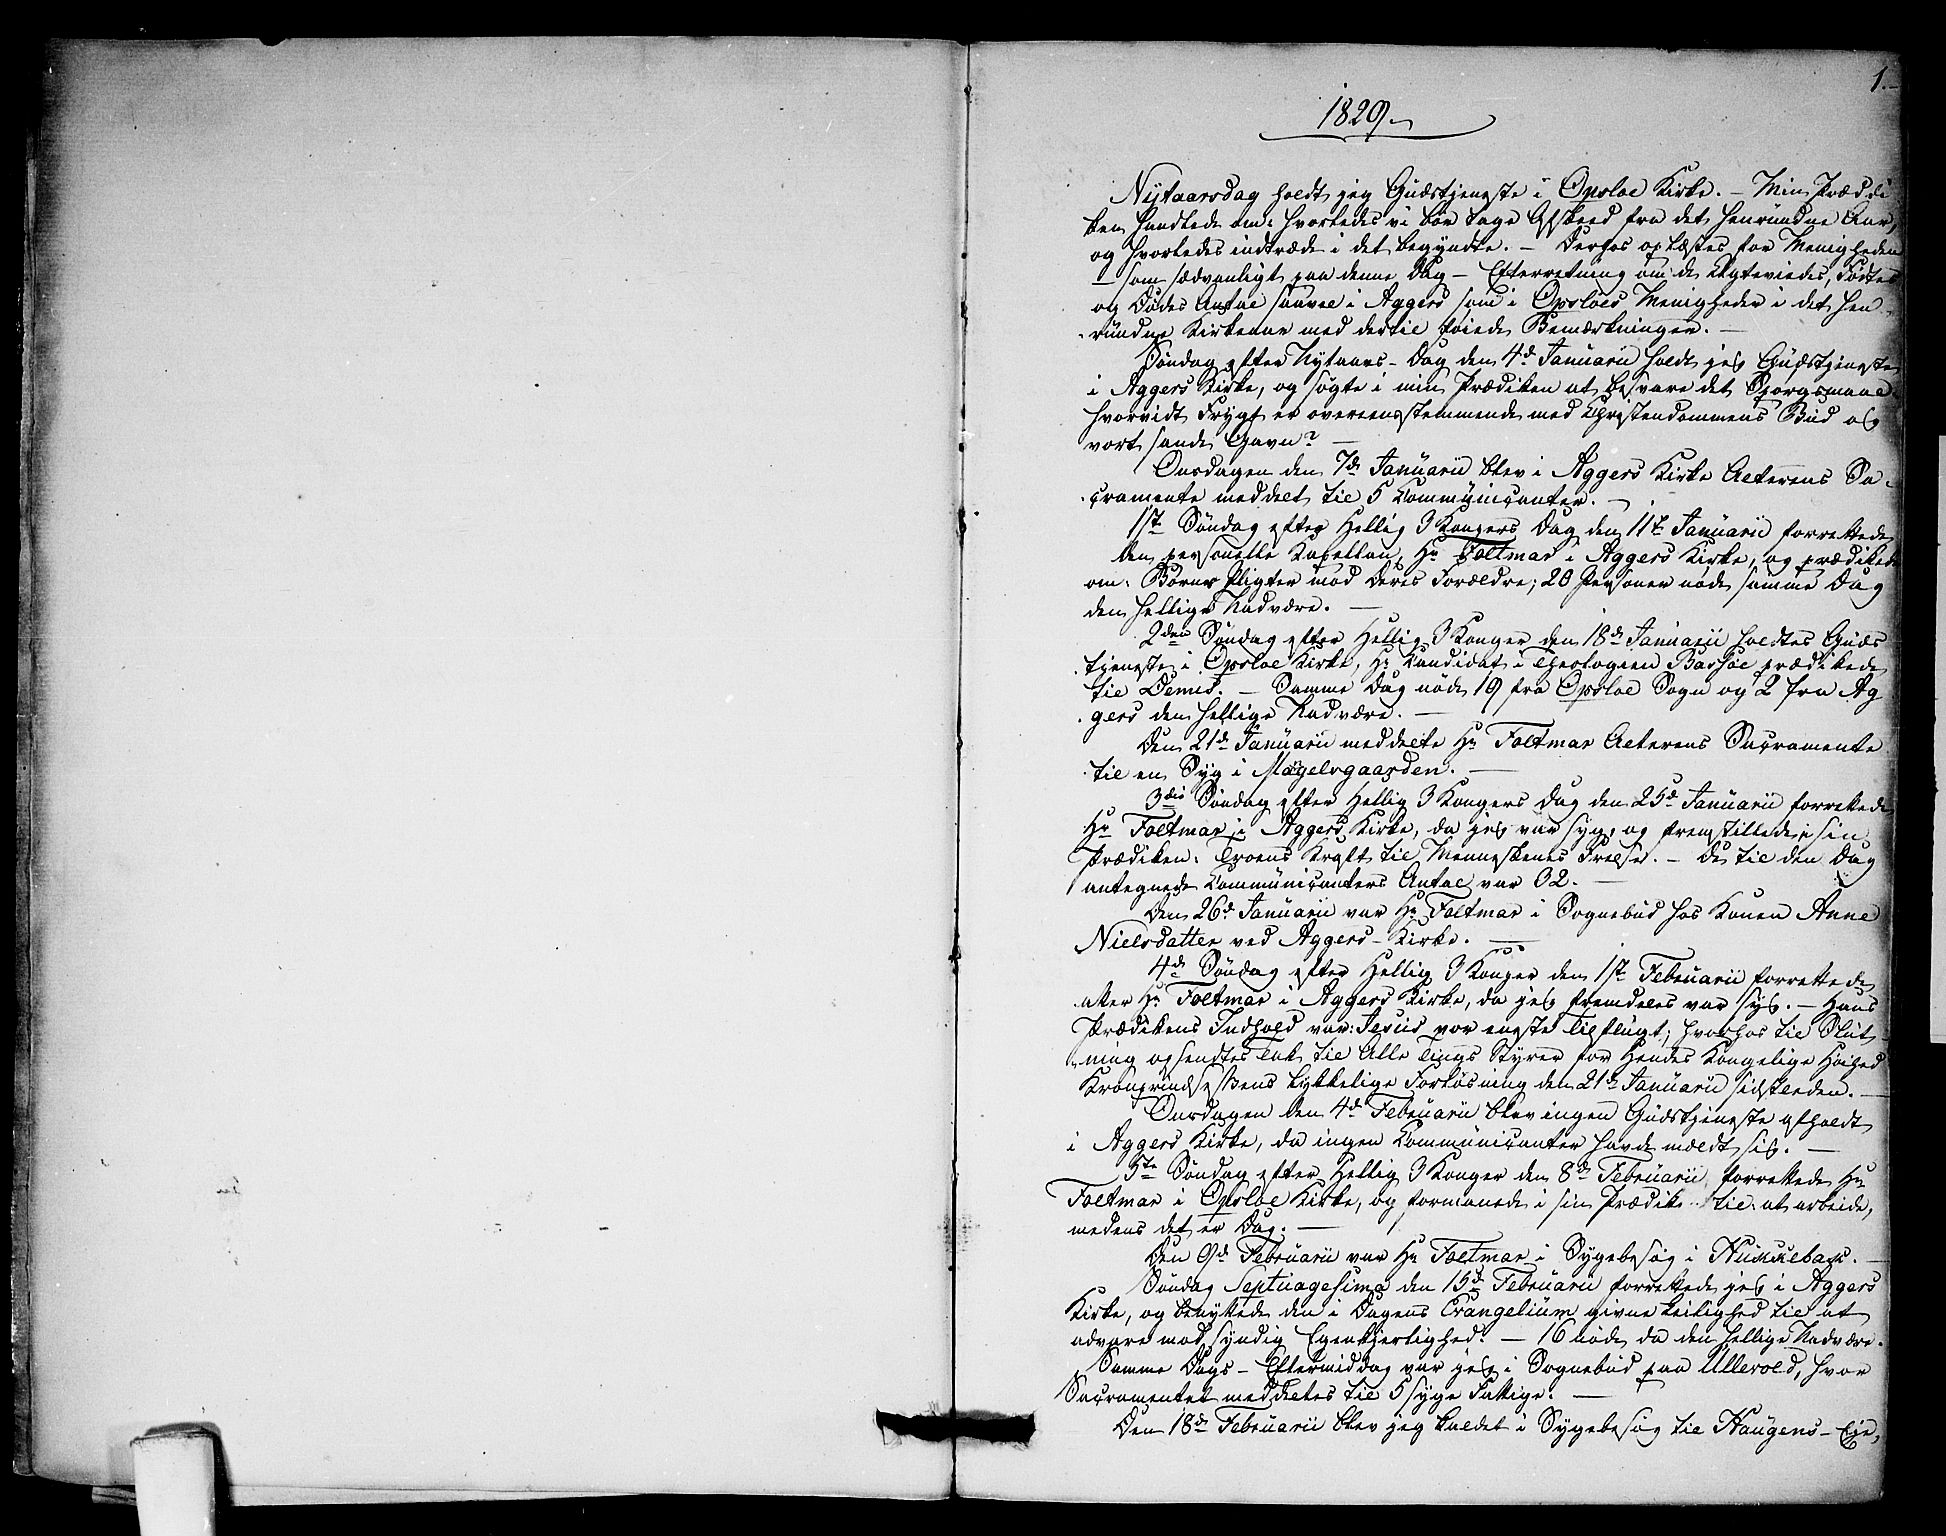 1.
1829
Nÿtaarsdag holdt jeg Gudstjeneste i Opsloe Kirke. – Min Prædi
ken handlede om: hvorledes vi bør tage Afskeed fra det henrundne Aar,
og hvorledes indtræde i det begyndte. – Derhos oplæstes for Menigheden
– som sædvanligt paa denne Dag – Efterretning om de Ægteviedes, Fødtes
og Dødes Antal saavel i Aggers som i Opsloes Menigheder i det hen
rundne Kirkeaar med dertil føiede Bemærkninger. –
Søndag efter Nytaars-Dag den 4de Januarii holdt jeg Gudstjeneste
i Aggers Kirke, og søgte i min Prædiken at besvare det Spørgsmaal
hvorvidt Frygt er overeensstemmende med Christendommens Bud og
vort sande Gavn? –
Onsdagen den 7de Januarii blev i Aggers Kirke Alterens Sa-
cramente meddelt til 5 Communicanter. –
1ste Søndag efter Hellig 3 Kongers Dag den 11te Januarii forrettede
den personelle Kapellan, Hr Foltmar i Aggers Kirke, og prædikede
om: Børns Pligter mod deres Forældre; 20 Personer nøde samme Dag
den hellige Nadvære. –
2den Søndag efter Hellig 3 Konger den 18de Januarii holdtes Guds
tjeneste i Opsloe Kirke, Hr Candidat i Theologien Bassøe prædikede
til Demis. – Samme Dag nøde 19 fra Opsloe Sogn og 2 fra Ag
gers den hellige Nadvære. –
Den 21de Januarii meddelte Hr Foltmar Alterens Sacramente
til en Syg i Møgelsgaarden. –
3die Søndag efter Hellig 3 Kongers Dag den 25de Januarii forrettede
Hr Foltmar i Aggers Kirke, da jeg var syg, og fremstillede i sin
Prædiken: Troens Kraft til Menneskenes Frelse. – De til den Dag
antegnede Communicanters Antal var 32. –
Den 26de Januarii var Hr Foltmar i Sognebud hos Konen Anne
Nielsdatter ved Aggers-Kirke. –
4de Søndag efter Hellig 3 Konger den 1ste Februarii forrettede
atter Hr Foltmar i Aggers Kirke, da jeg fremdeles var syg. – Hans
Prædikens Indhold var: Jesus vor eneste Tilflugt; hvorhos til Slut-
ning opsendtes Tak til Alle Tings Styrer for Hendes Kongelige Høihed
Kronprindsessens lykkelige Forløsning den 21de Januarii sidstleden. –
Onsdagen den 4de Februarii blev ingen Gudstjeneste afholdt
i Aggers Kirke, da ingen Communicanter havde meldt sig. –
5te Søndag efter Hellig 3 Konger den 8de Februarii forrettede Hr
Foltmar i Opsloe Kirke, og formanede i sin Prædike til: at arbeide,
medens det er Dag. –
Den 9de Februarii var Hr Foltmar i Sygebesøg i Nukkebak. –
Søndag Septuagesima den 15de Februarii forrettede jeg i Aggers
Kirke, og benyttede den i Dagens Evangelium givne Leilighed til at
advare mod syndig Egenkjerlighed. – 16 nøde da den hellige Nadvære.
Samme Dags-Eftermiddag var jeg i Sognebud paa Ullevold, hvor
Sacramentet meddeltes til 5 syge Fattige. –
Den 18de Februarii blev jeg kaldet i Sygebesøg til Haugens-Eie,